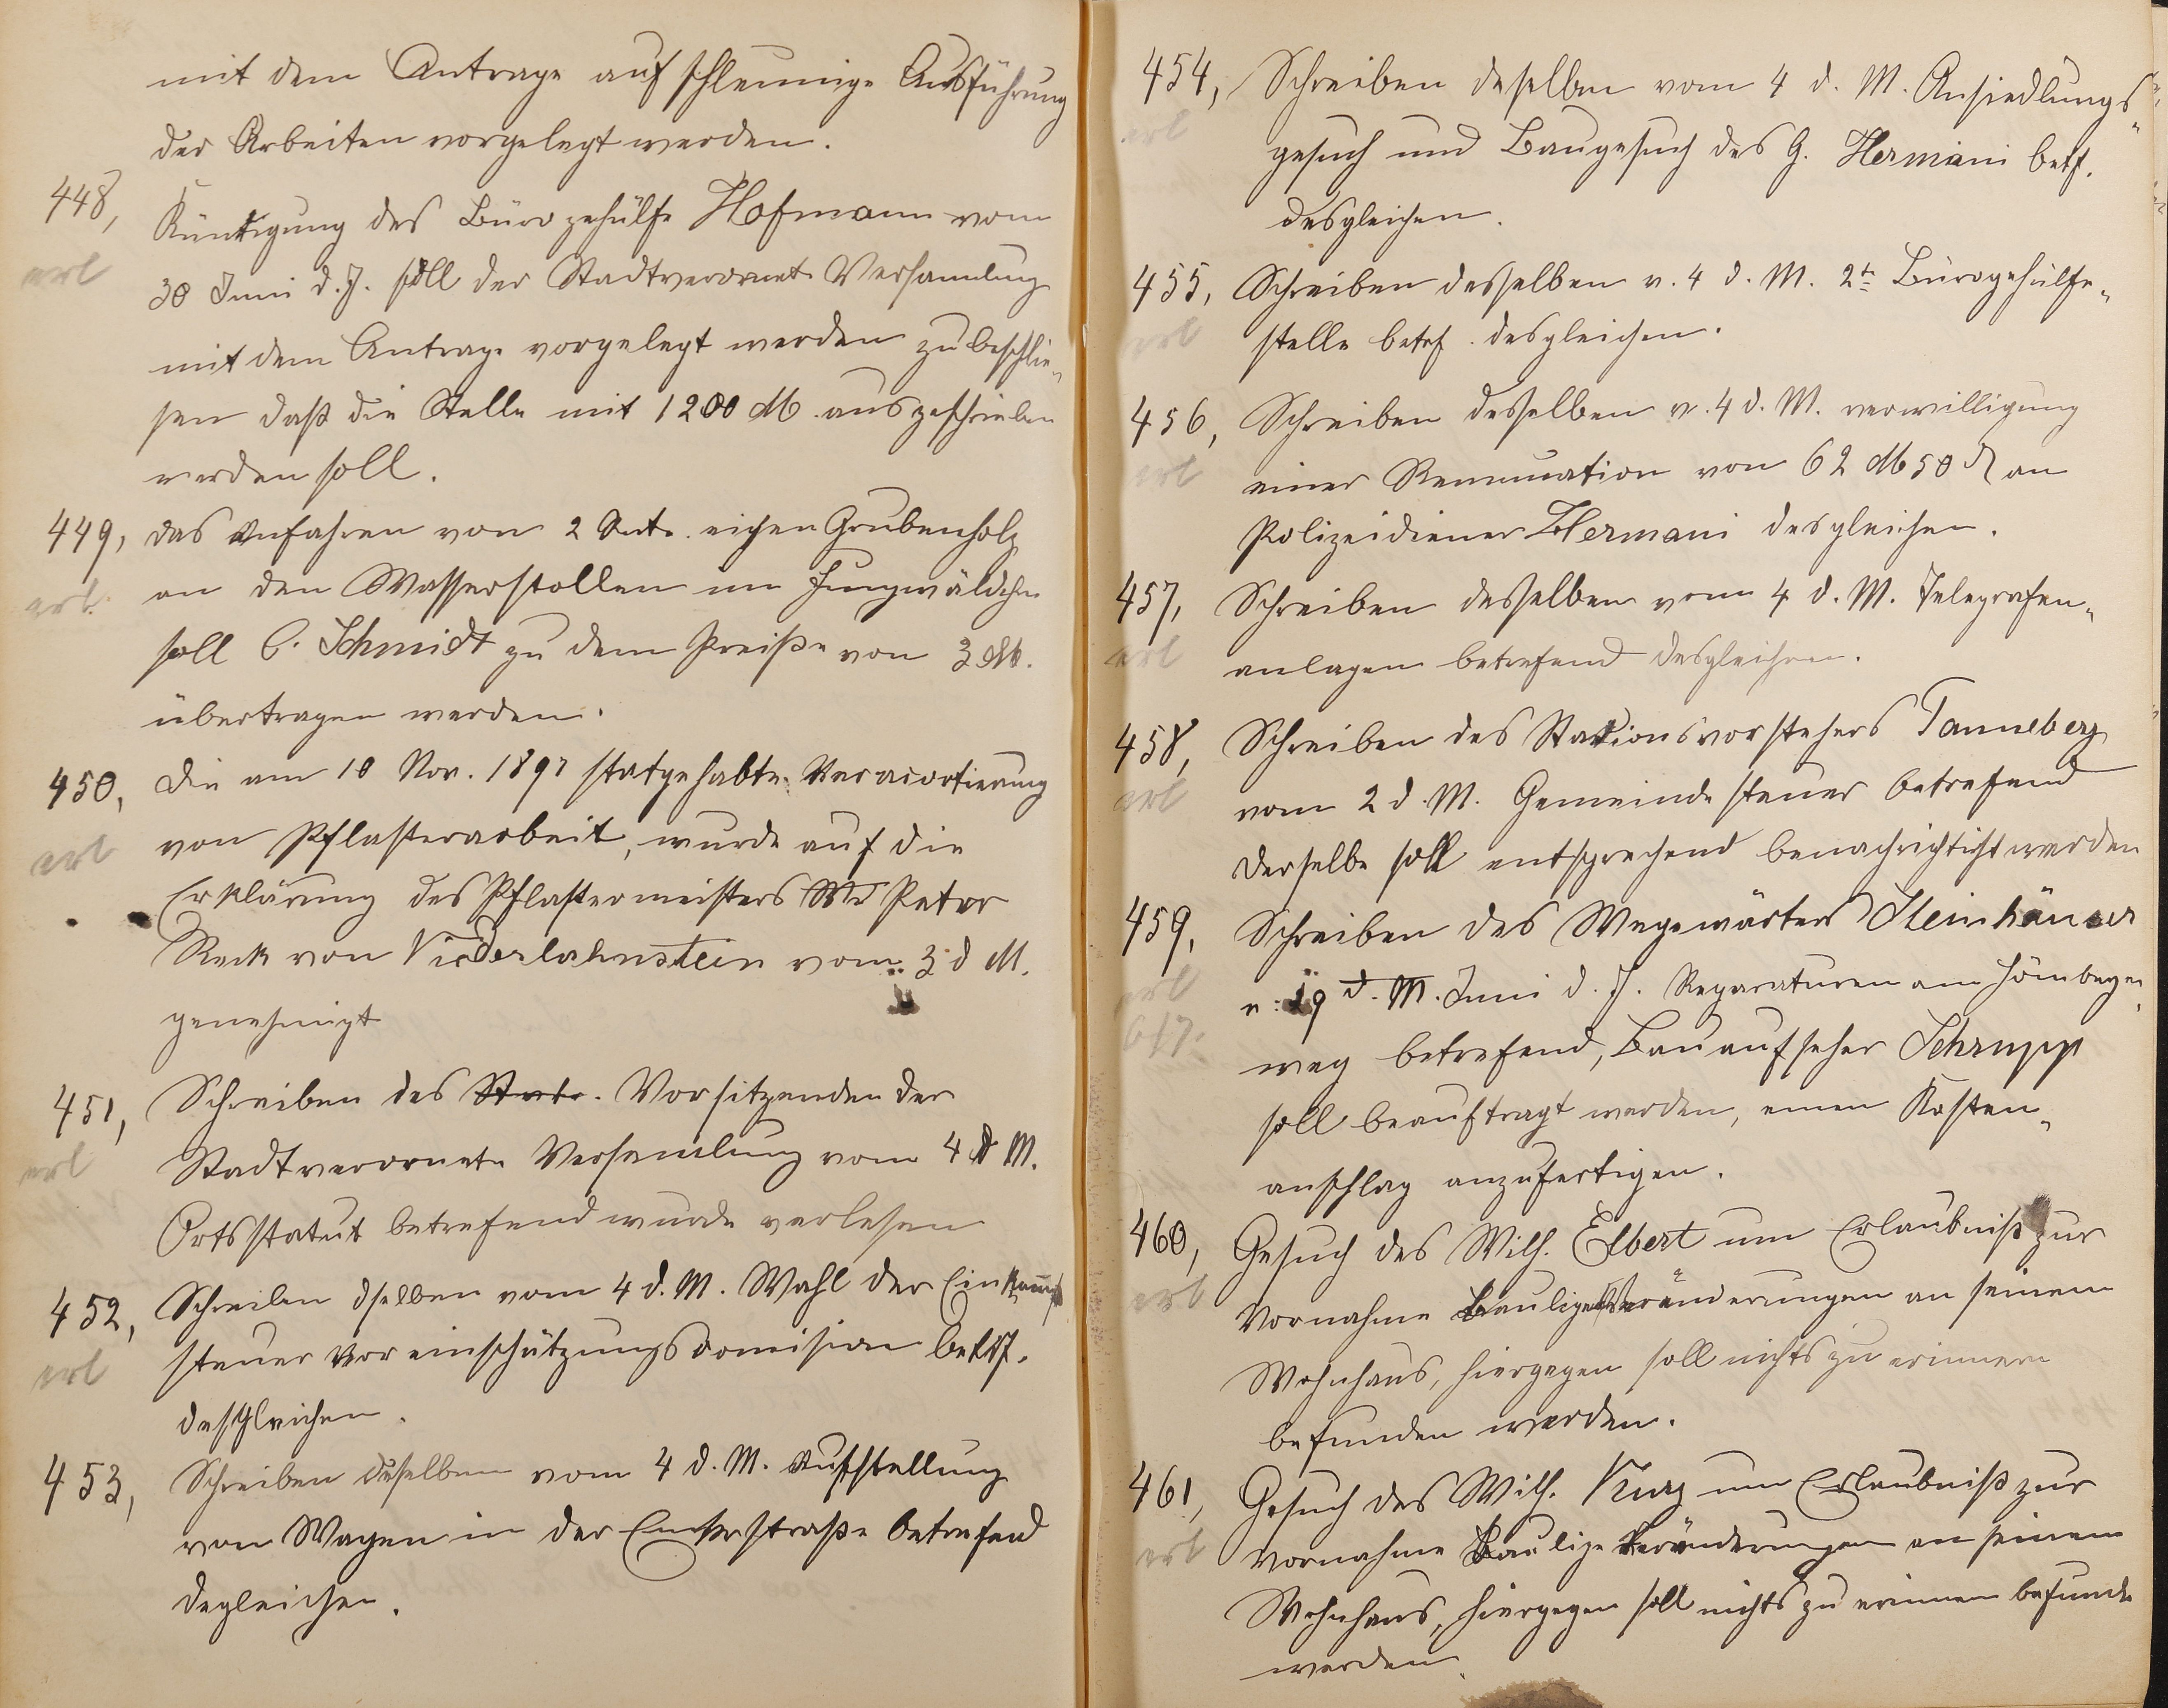 mit dem Antrage auf schleunige Ausführung
der Arbeiten vorgelegt werden.
448, Kündigung des Bürogehülfe Hofmann vom
erl
30 Juni d. J. soll der Stadtverornet. Versamlung
mit dem Antrage vorgelegt werden zu beschlie„
sen daß die Stelle mit 1200 M. ausgeschrieben
werden soll.
449, das Anfahren von 2 eichen Grubenholz
erl.
an den Wasserstollen im Jungwäldchen
soll C. Schmidt zu dem Preiße von 3 M.
übertragen werden.
450, Die am 10 Nov. 1897 statgehabte Veracortierung
erl
von Pflasterarbeit, wurde auf die
Erklärung des Pflastermeisters Peter
Reck von Niederlahnstein vom 3 d M.
genehmigt
451, Schreiben des Vorsitzenden der
erl
Stadtverornete Versamlung vom 4 d M.
Ortsstatut betrefend wurde verlesen
452, Schreiben dselben vom 4 d. M. Wahl der
erl
steuer Voreinschätzungscomision betrf.
desgleichen.
453, Schreiben deselben vom 4 d. M. Aufstellung
von Wagen in der Emserstraße betrefend
degleichen.
454, Schreiben deselben vom 4 d. M. Ansiedlungs„
erl
gesuch und Baugesuch des G. Hermani betf.
desgleichen.
455, Schreiben desselben v. 4 d. M. 2te Bürogehülfe„
erl
stelle betrf. desgleichen.
456, Schreiben desselben v. 4 d. M. verwilligung
erl
einer Remunation von 62 M 50 ₰ an
Polizeidiener Hermani desgleichen.
457, Schreiben desselben vom 4 d. M. Telegrafen„
erl
anlagen betrefend desgleichen.
458, Schreiben des Stationsvorstehers Tanneberg
erl
vom 2 d. M. Gemeindesteuer betrefend
Derselbe soll entsprechend benachrichticht werden
459, Schreiben des Wegewärter Steinhäuser
erl
v. 29 d. M. Juni d. J. Reparaturen am
617.
weg betrefend, Bauaufseher Schrupp
soll beauftragt werden, einen Kosten„
anschlag anzufertigen.
460, Gesuch des Wilh. Elbert um Erlaubniß zur
erl
Vornahme Baulige Veränderungen an seinem
Wohnhaus, hiergegen soll nichts zu erinnern
befunden werden.
461, Gesuch des Wilh. Kurz um Erlaubniß zur
erl
Vornahme Baulige Veränderungen an seinem
Wohnhaus, hiergegen soll nichts zu erinnen befunde
werden.